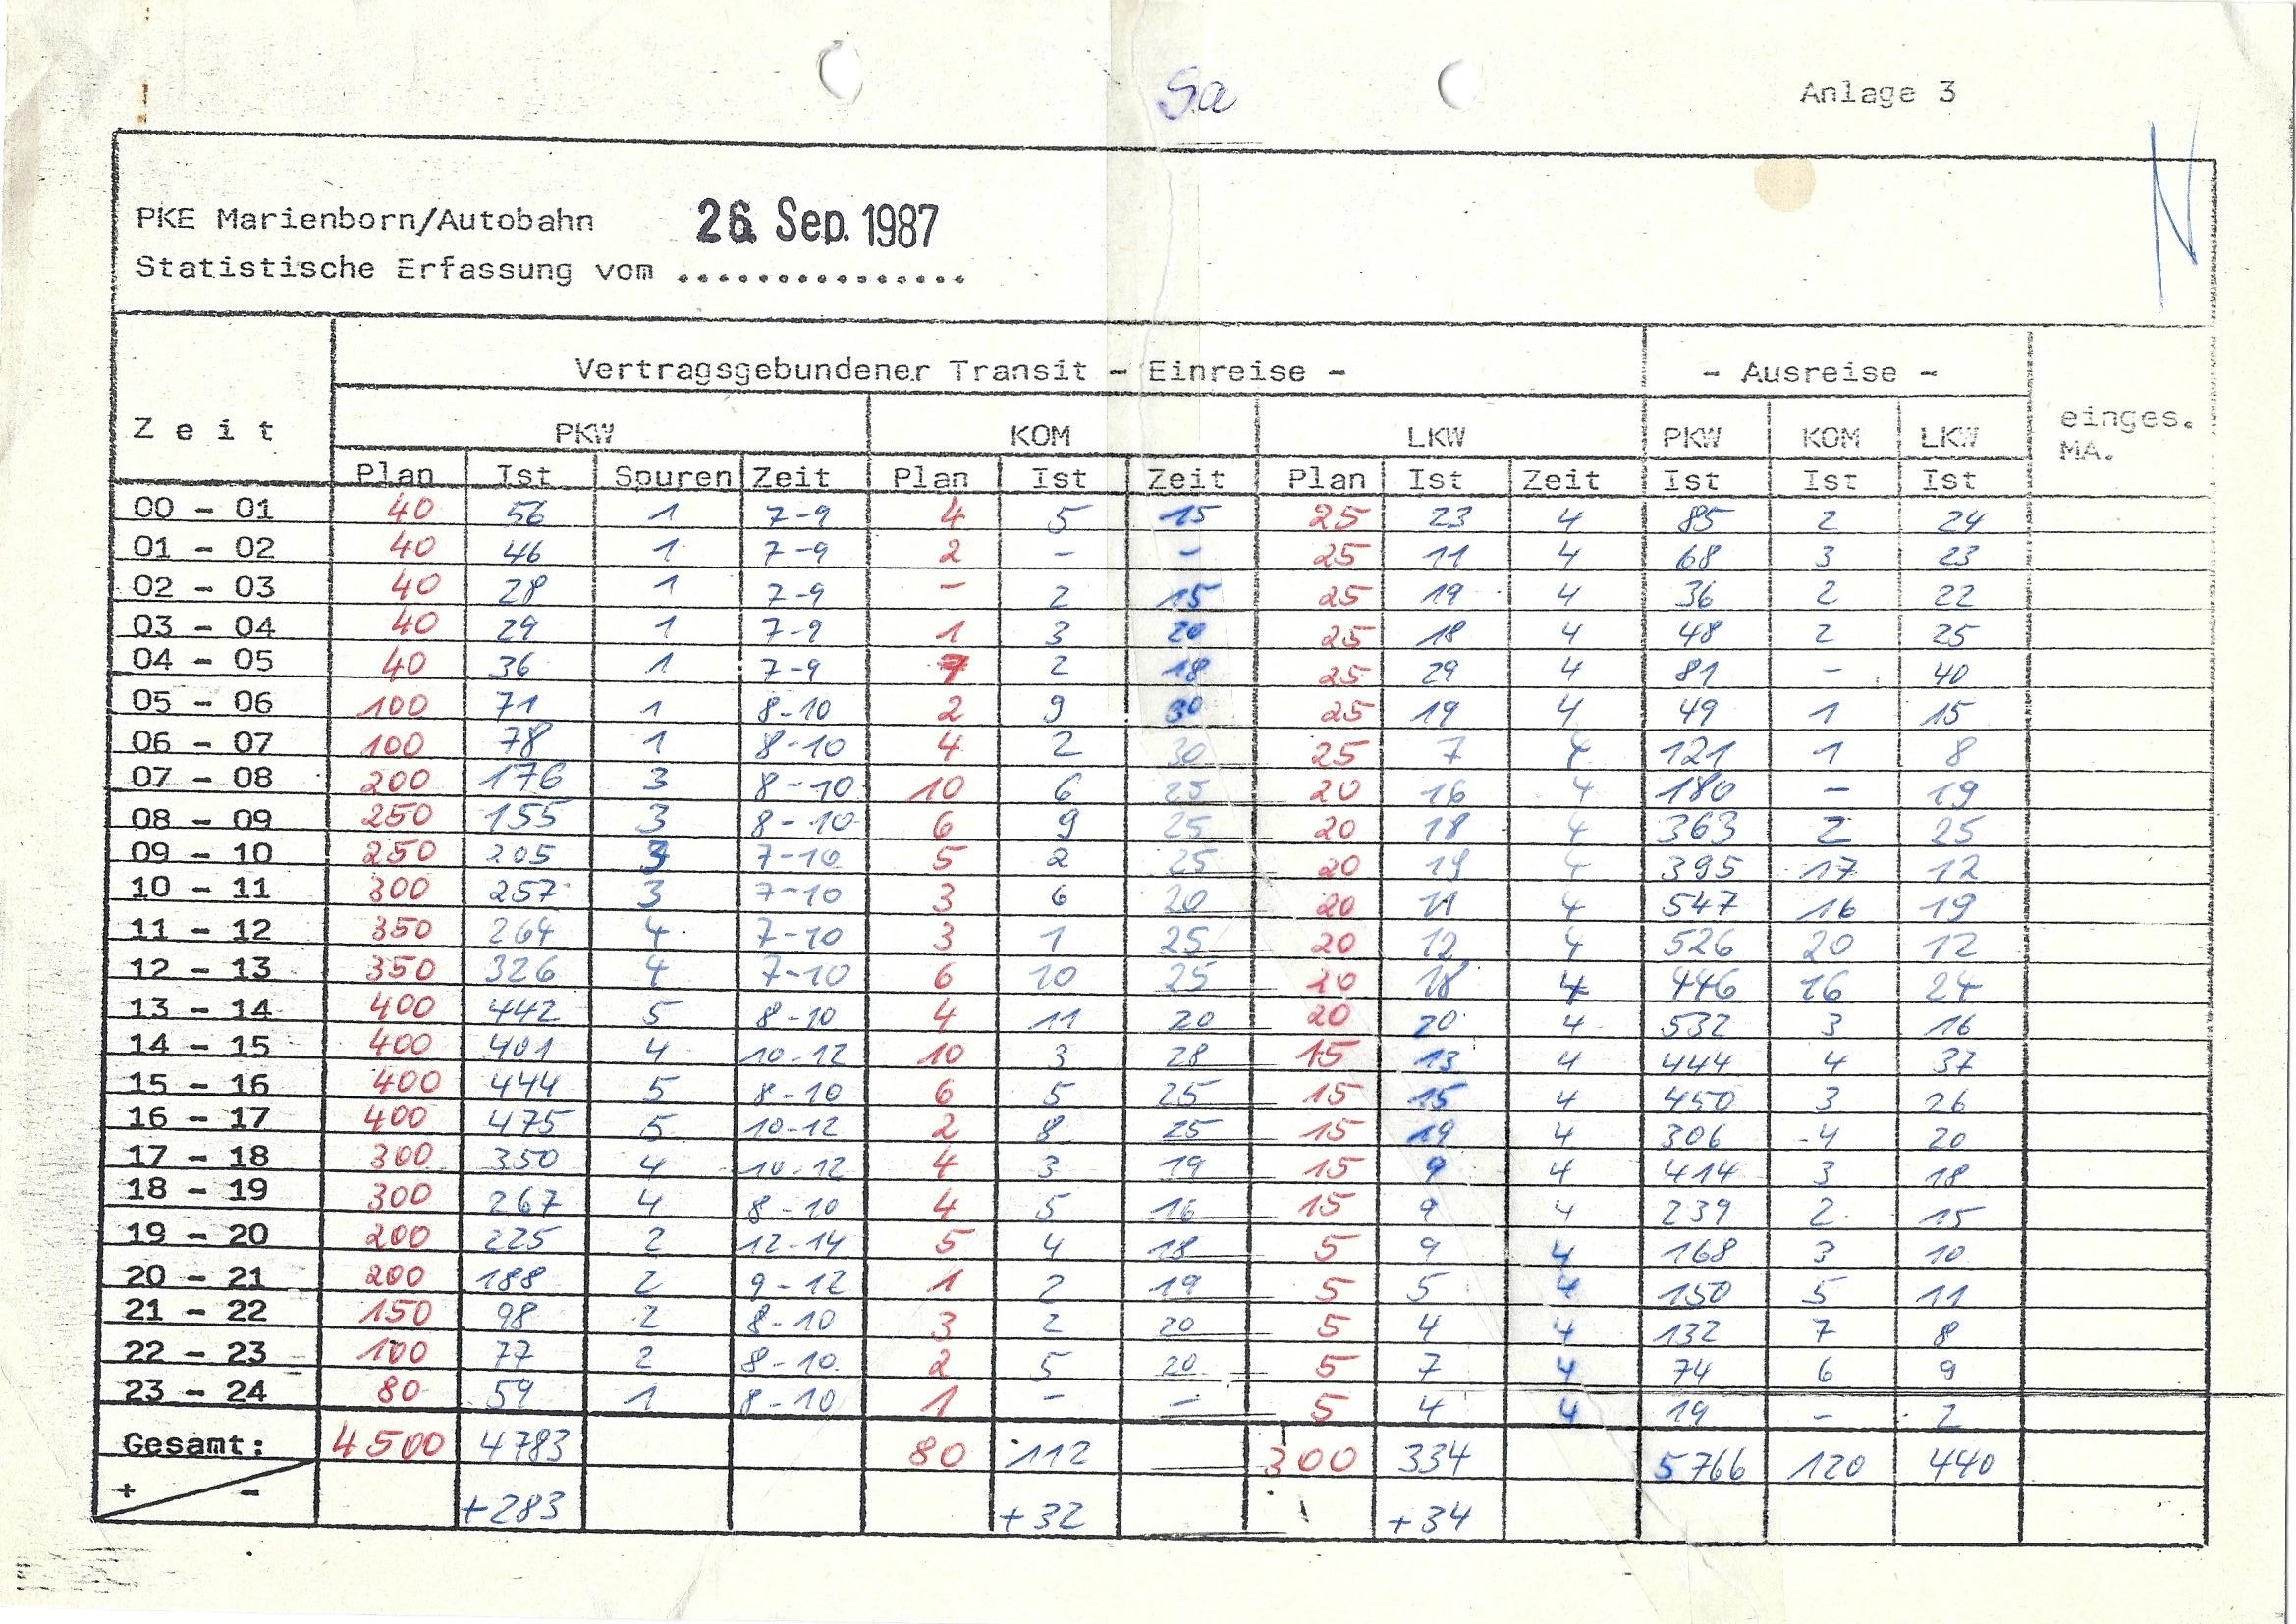 Sa
Anlage 3
N
PKE Marienborn/Autobahn 26. Sep. 1987
Statistische Erfassung vom ...............
Vertragsgebundener Transit - Einreise - - Ausreise -
Zeit PKW KOM LKW PKW KOM LKW einges. MA.
Plan Ist Spuren Zeit Plan Ist Zeit Plan Ist Zeit Ist Ist Ist
00 - 01 40 56 1 7-9 4 5 15 25 23 4 85 2 24
01 - 02 40 46 1 7-9 2 - - 25 11 4 68 3 23
02 - 03 40 28 1 7-9 - 2 15 25 19 4 36 2 22
03 - 04 40 29 1 7-9 1 3 20 25 18 4 48 2 25
04 - 05 40 36 1 7-9 2 18 25 29 4 81 - 40
05 - 06 100 71 1 8-10 2 9 30 25 19 4 49 1 15
06 - 07 100 78 1 8-10 4 2 30 25 7 4 121 1 8
07 - 08 200 176 3 8-10 10 6 25 20 16 4 180 - 19
08 - 09 250 155 3 8-10 6 9 25 20 18 4 363 2 25
09 - 10 250 205 3 7-10 5 2 25 20 19 4 395 17 12
10 - 11 300 257 3 7-10 3 6 20 20 11 4 547 16 19
11 - 12 350 264 4 7-10 3 1 25 20 12 4 526 20 12
12 - 13 350 326 4 7-10 6 10 25 20 18 4 446 16 24
13 - 14 400 442 5 8-10 4 11 20 20 20 4 532 3 16
14 - 15 400 401 4 10-12 10 3 28 15 13 4 444 4 37
15 - 16 400 444 5 8-10 6 5 25 15 15 4 450 3 26
16 - 17 400 475 5 10-12 2 8 25 15 19 4 306 4 20
17 - 18 300 350 4 10-12 4 3 19 15 9 4 414 3 18
18 - 19 300 267 4 8-10 4 5 16 15 9 4 239 2 15
19 - 20 200 225 2 12-14 5 4 18 5 9 4 168 3 10
20 - 21 200 188 2 9-12 1 2 19 5 5 4 150 5 11
21 - 22 150 98 2 8-10 3 2 20 5 4 4 132 7 8
22 - 23 100 77 2 8-10 2 5 20 5 7 4 74 6 9
23 - 24 80 59 1 8-10 1 - - 5 4 4 19 - 2
Gesamt: 4500 4783 80 112 300 334 5766 120 440
+ - +283 +32 +34